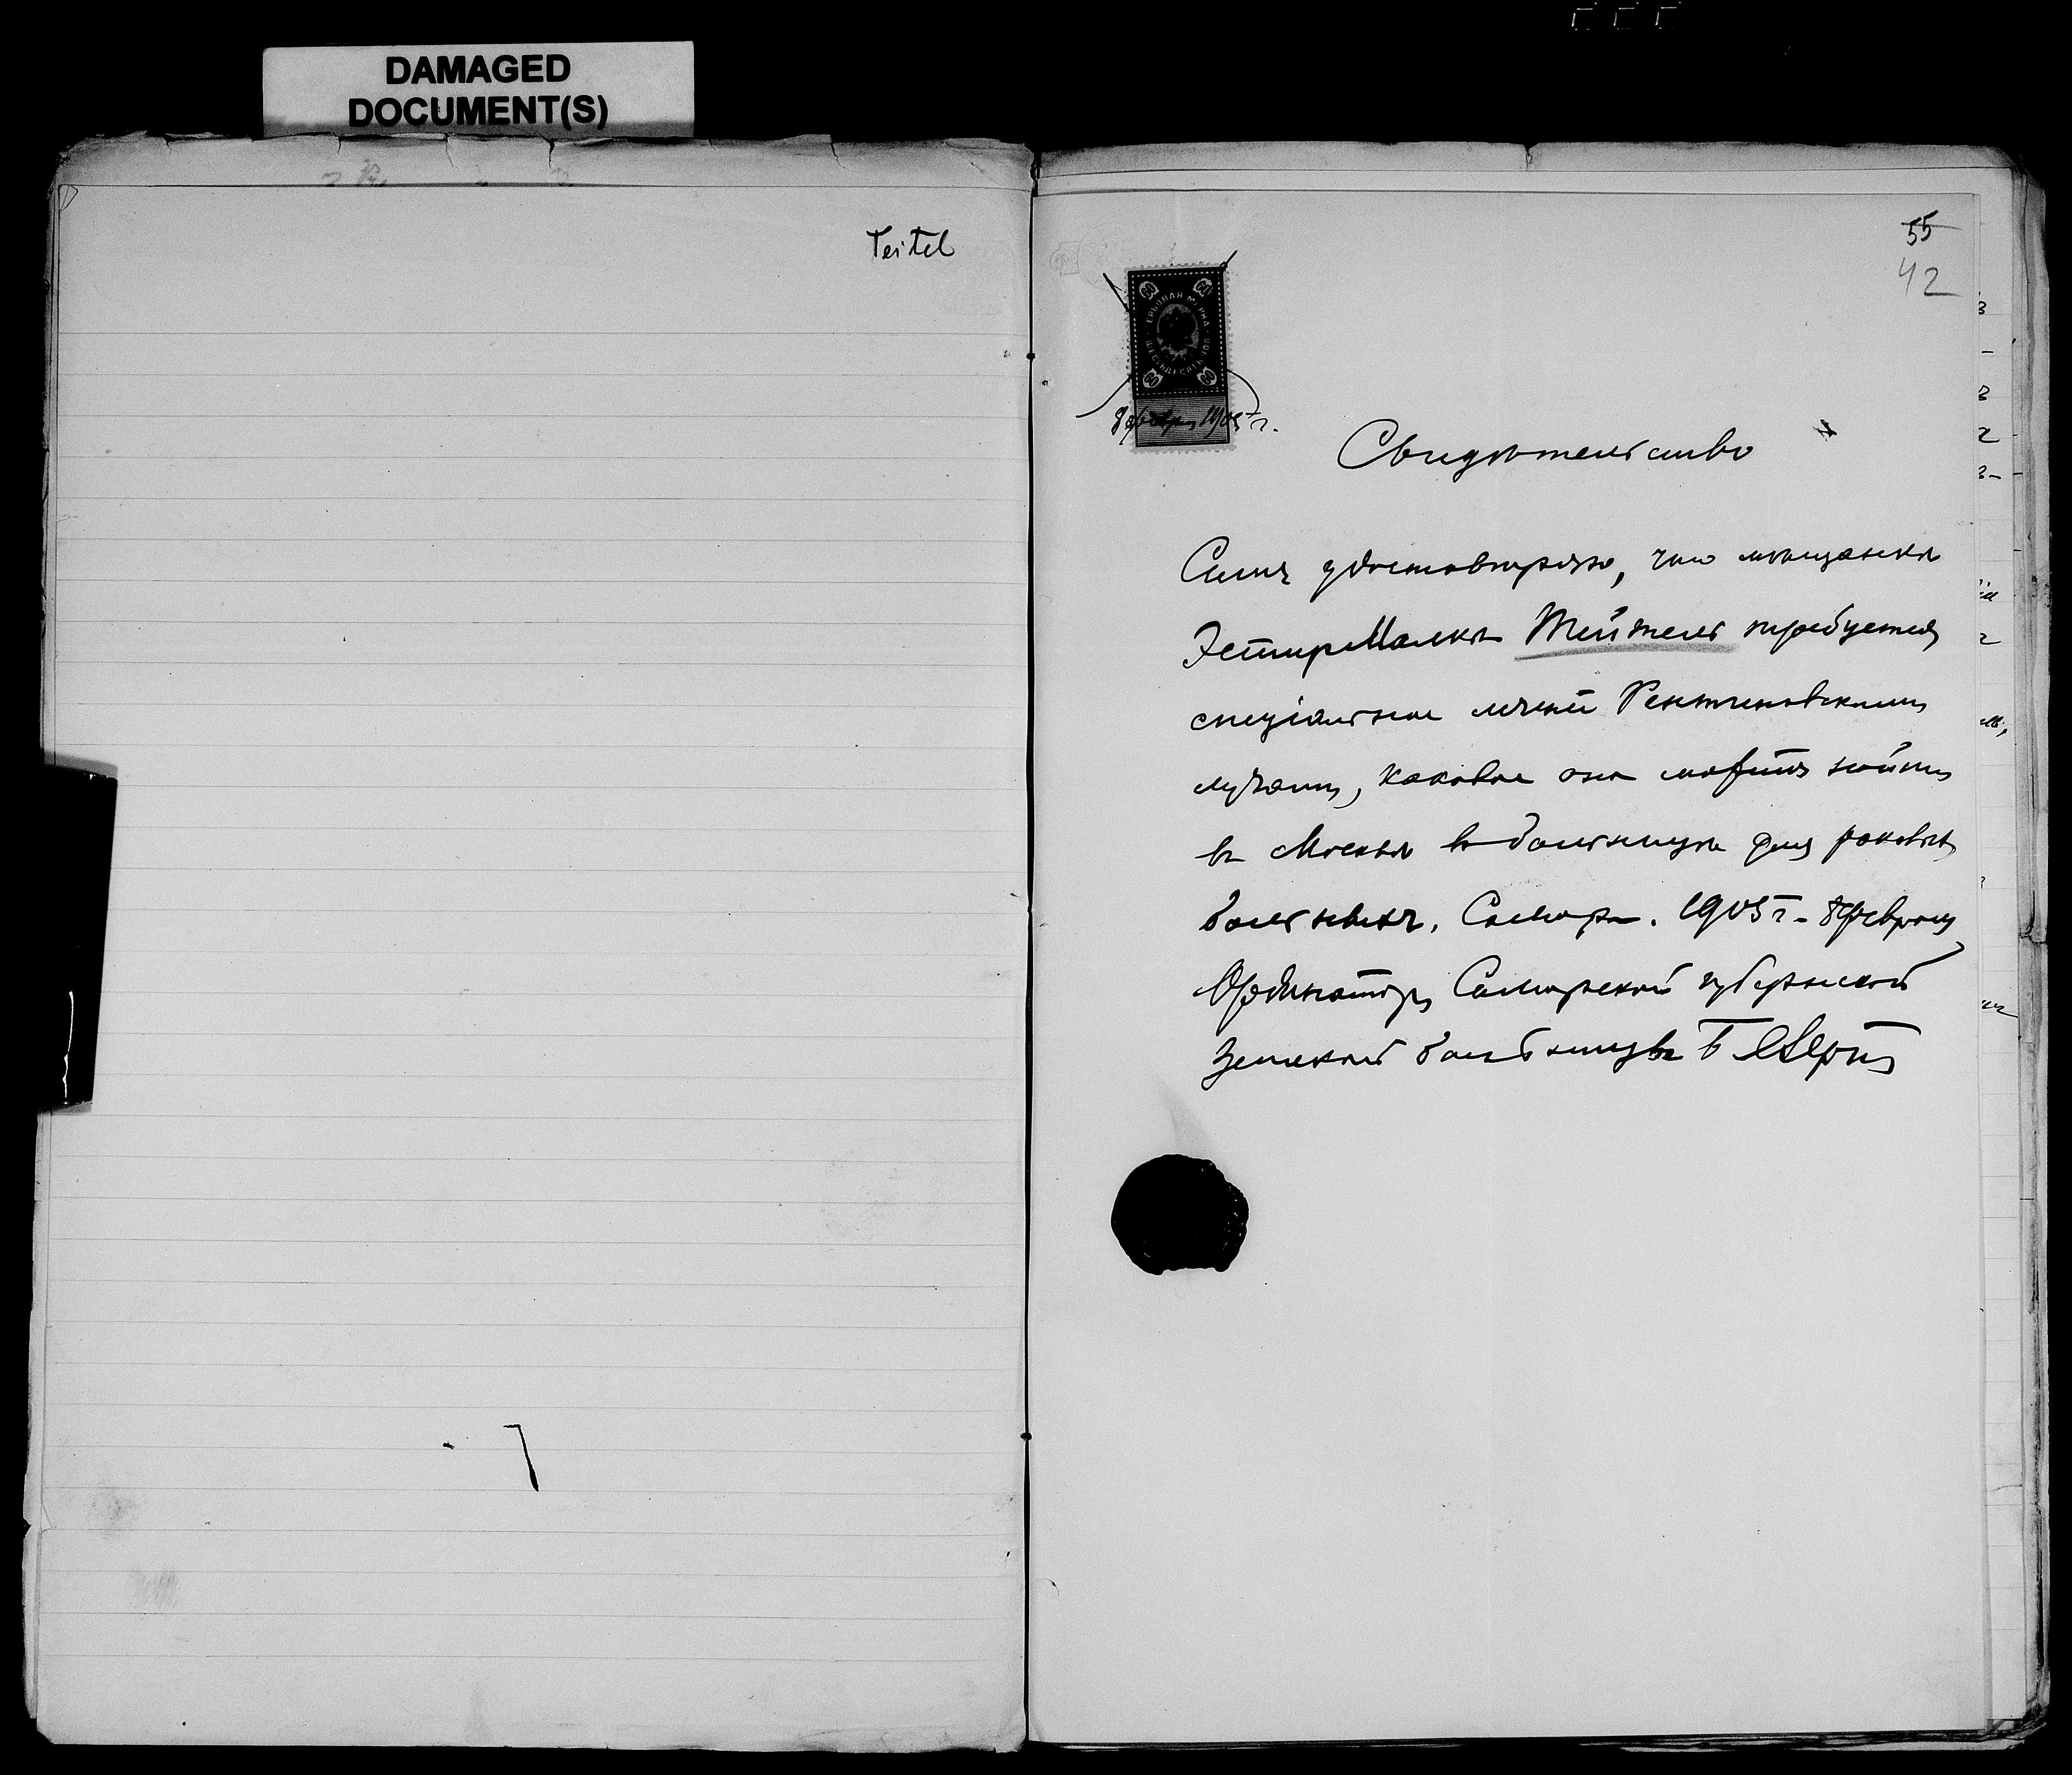 DAMAGED
DOCUMENT(S)
Teitel
55
42
60 60
ГЕРБОВАЯ МАРКА
ШЕСТЬДЕСЯТЪ КОП
60 60
8 февраля 1905 г.
Свидѣтельство
Симъ удостовѣряю, что мѣщанкѣ
Эстиръ Малкѣ Тейтель требуется
спеціальное леченіе Рентгеновскими
лучами, каковое она можетъ найти
въ Москвѣ въ больницѣ для раковыхъ
больныхъ. Самара. 1905 г. 8 февраля
Ординаторъ Самарской губернской
Земской больницы Б